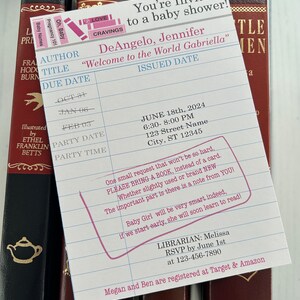 You're Invi
to a baby shower!
LOVE
CRAVINGS
AUTHOR DeAngelo, Jennifer
TITLE "Welcome to the World Gabriella"
DUE DATE ISSUED DATE
OCT 31
JAN 06
FEB 03
PARTY DATE JUNE 18th, 2024
PARTY TIME 6:30- 8:00 PM
123 Street Name
City, ST 12345
One small request that won't be hard,
PLEASE BRING A BOOK, instead of a card.
Whether slightly used or brand NEW
The important part is there is a note from YOU!
Baby Girl will be very smart indeed,
if we start early, she will soon learn to read!
LIBRARIAN: Melissa
RSVP by June 1st
at 123-456-7890
Megan and Ben are registered at Target & Amazon
Illustrated
by
ETHEL
FRANKLIN
BETTS
FRANCES
HODGSON
BURNETT